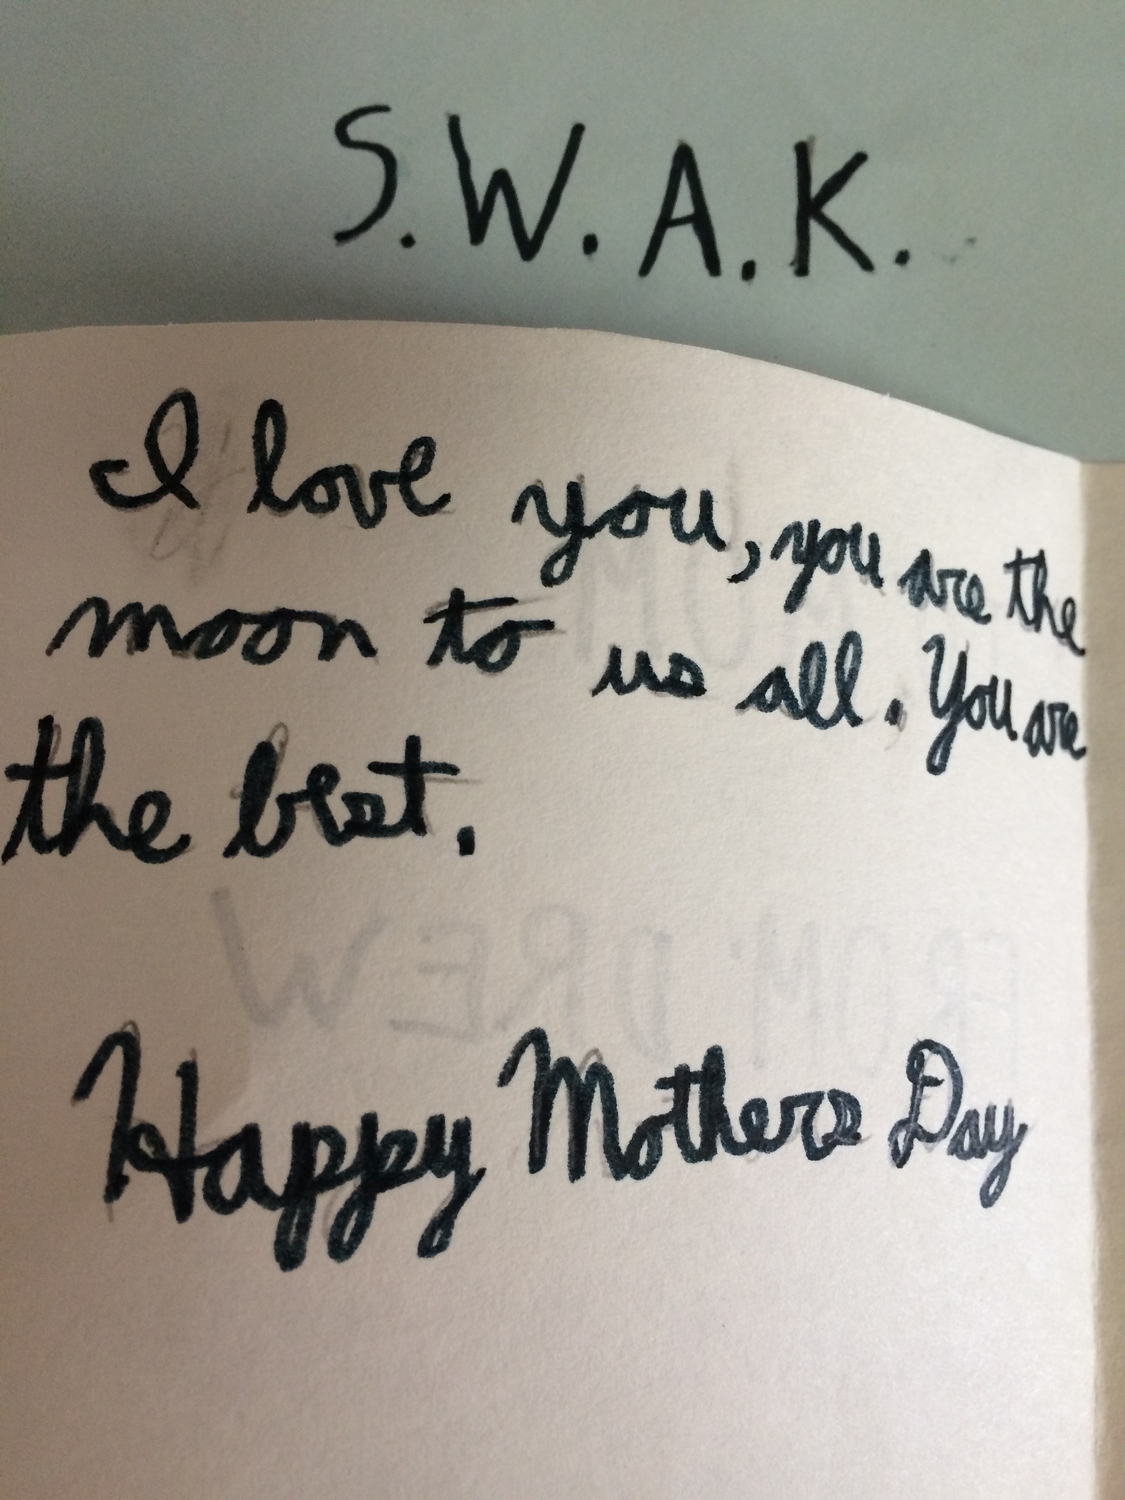 S.W.A.K.
I love you, you are the
moon to us all. You are
the best.
FROM DREW
Happy Mothers Day